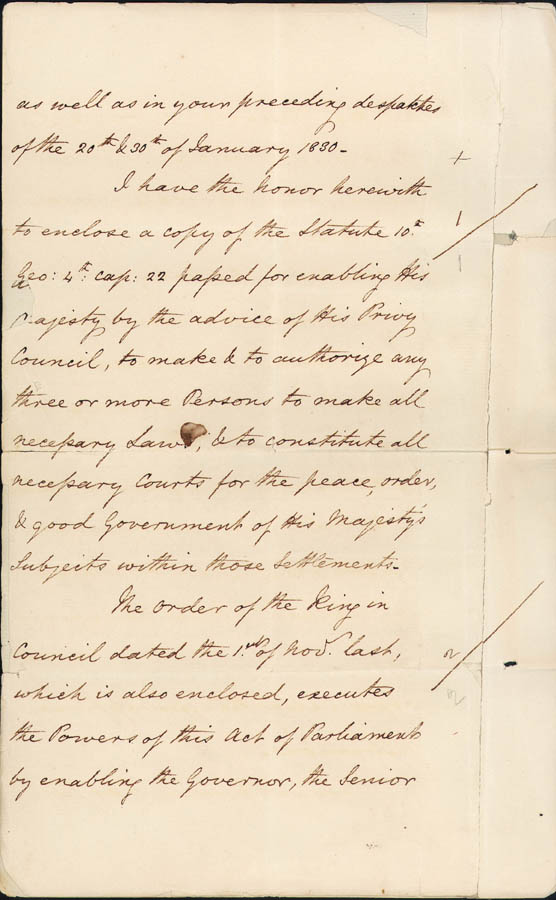 as well as in your preceding despatches
of the 20th & 30th of January 1830 -
I have the honor herewith
to enclose a copy of the Statute 10th
Geo: 4th cap: 22 passed for enabling His
Majesty by the advice of His Privy
Council, to make & to authorize any
three or more Persons to make all
necessary Laws, & to constitute all
necessary Courts for the peace, order,
& good Government of His Majesty's
Subjects within those Settlements -
The order of the King in
Council dated the 1st of Novr. last,
which is also enclosed, executes
the Powers of this Act of Parliament
by enabling the Governor, the Senior
+
1
1
2
2